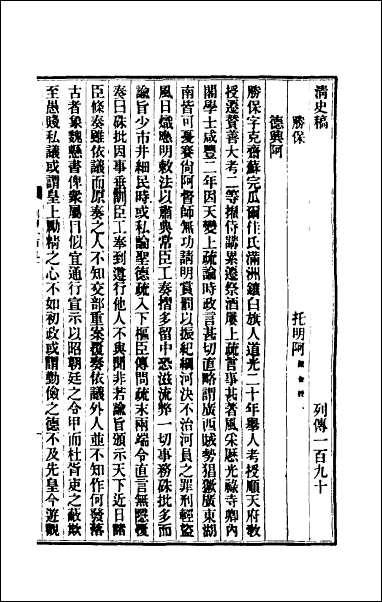 清史稿
列傳一百九十
勝保
托明阿
德興阿
勝保字克齋蘇完瓜爾佳氏滿洲鑲白旗人道光二十年舉人考授順天府教
授遷贊善大考二等擢侍講累遷祭酒屢上疏言事甚著風采歷光祿寺卿內
閣學士咸豐二年因天變上疏論時政言甚切直略謂廣西賊勢猖獗廣東湖
南皆可憂賽尚阿督師無功請明賞罰以振紀綱河決不治河員之罪刑輕盜
風日熾應明敕法以肅典常臣工奏摺多留中恐滋流弊一切事務硃批多而
諭旨少市井細民時或私論聖德疏入下樞臣傳問疏末兩端令直言無隱覆
奏曰硃批因事垂訓臣工奉到遵行他人不與聞非若諭旨頒示天下近日諸
臣條奏雖依議而原奏之人不知交部重案覆奏依議外人並不知作何發落
古者象魏懸書俾衆屬目似宜通行宣示以昭朝廷之令甲而杜胥吏之蔽欺
至愚賤私議或謂皇上勵精之心不如初政或謂勤儉之德不及先皇今遊觀